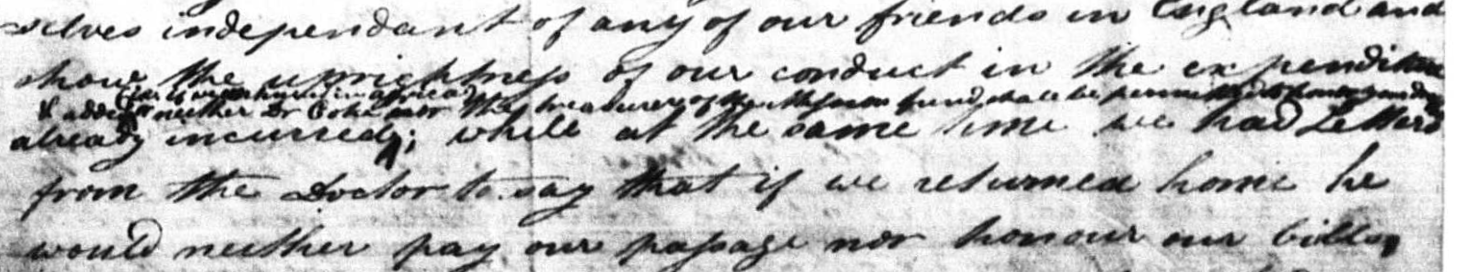 selves independant of any of our friends in England and
show the uprightness of our conduct in the expenditure
& added neither Dr Coke nor the treasurer of the Mission fund shall be permitted to
already incurred; while at the same time we had Letters
from the Doctor to say that if we returned home he
would neither pay our passage nor honour our bills,